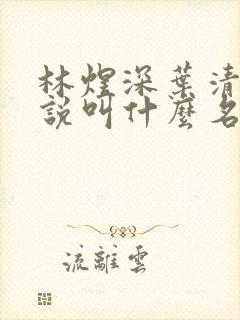 林煋深葉清
說叫什麼名
流離雲